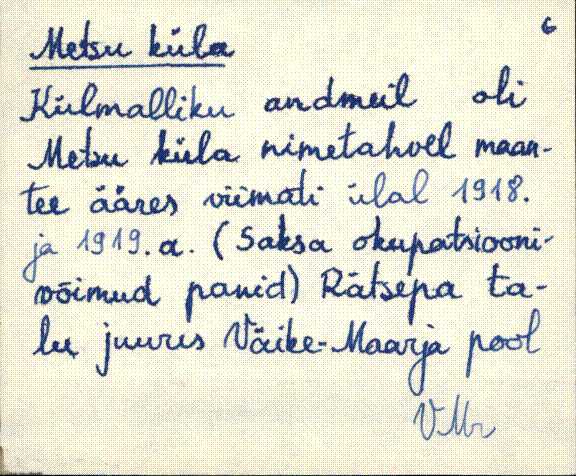 6
Metsu küla
Külmalliku andmeil oli
Metsu küla nimetahvel maan-
tee ääres viimati ülal 1918.
ja 1919. a. (Saksa okupatsiooni-
võimud panid) Rätsepa ta-
lu juures Väike-Maarja pool
VMr